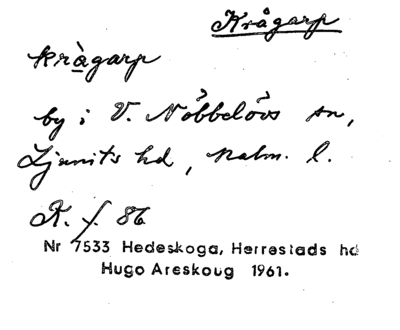 Krågarp
kràgarp
by i V. Nöbbelövs sn,
Ljunits hd, Malm. l.
K. f. 86
Nr 7533 Hedeskoga, Herrestads hd
Hugo Areskoug 1961.